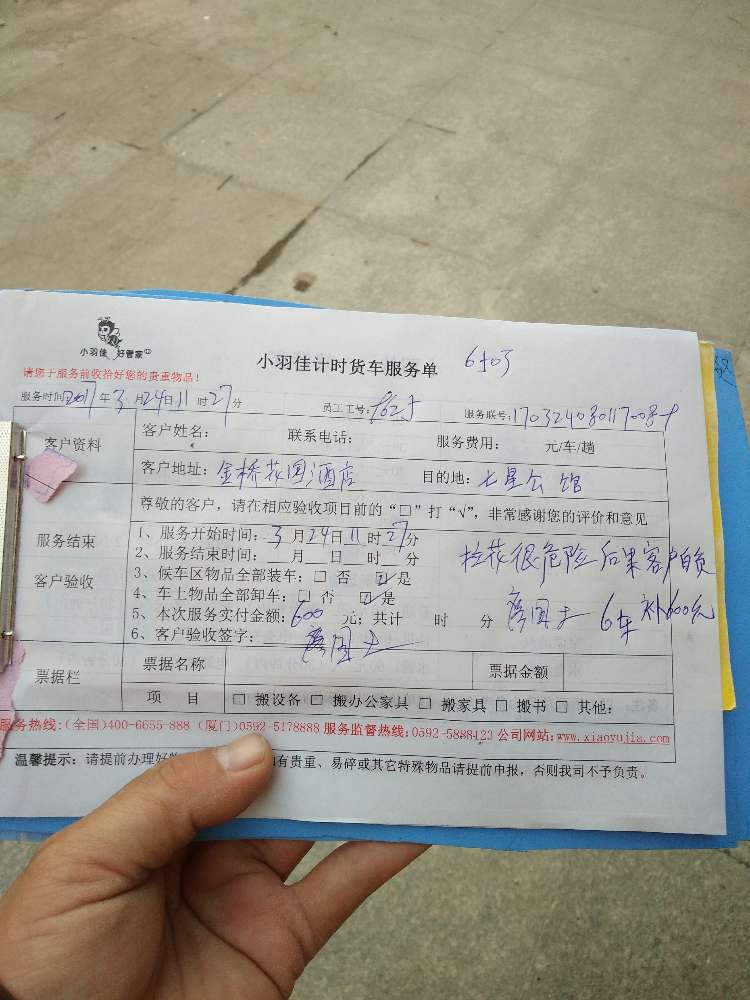 小羽佳 好管家
小羽佳计时货车服务单
请您于服务前收拾好您的贵重物品！
服务时间2017年3月24日11时27分 员工工号： 服务联号：
客户资料
客户姓名： 联系电话： 服务费用： 元/车/趟
客户地址：金桥花园酒店 目的地：七星公馆
尊敬的客户，请在相应验收项目前的“□”打“√”，非常感谢您的评价和意见
服务结束
客户验收
1、服务开始时间：3月24日11时27分
2、服务结束时间：__月__日__时__分
3、候车区物品全部装车：□ 否 ☑是
4、车上物品全部卸车：□ 否 ☑是
5、本次服务实付金额：600元；共计 时 分
6、客户验收签字：
很危险后果客户自负
6车 补600元
票据栏
票据名称 票据金额
项 目 □ 搬设备 □ 搬办公家具 □ 搬家具 □ 搬书 □ 其他：
服务热线：(全国)400-6655-888 (厦门)0592-5178888 服务监督热线：0592-5888123 公司网站：www.xiaoyujia.com
温馨提示：请提前办理好 有贵重、易碎或其它特殊物品请提前申报，否则我司不予负责。